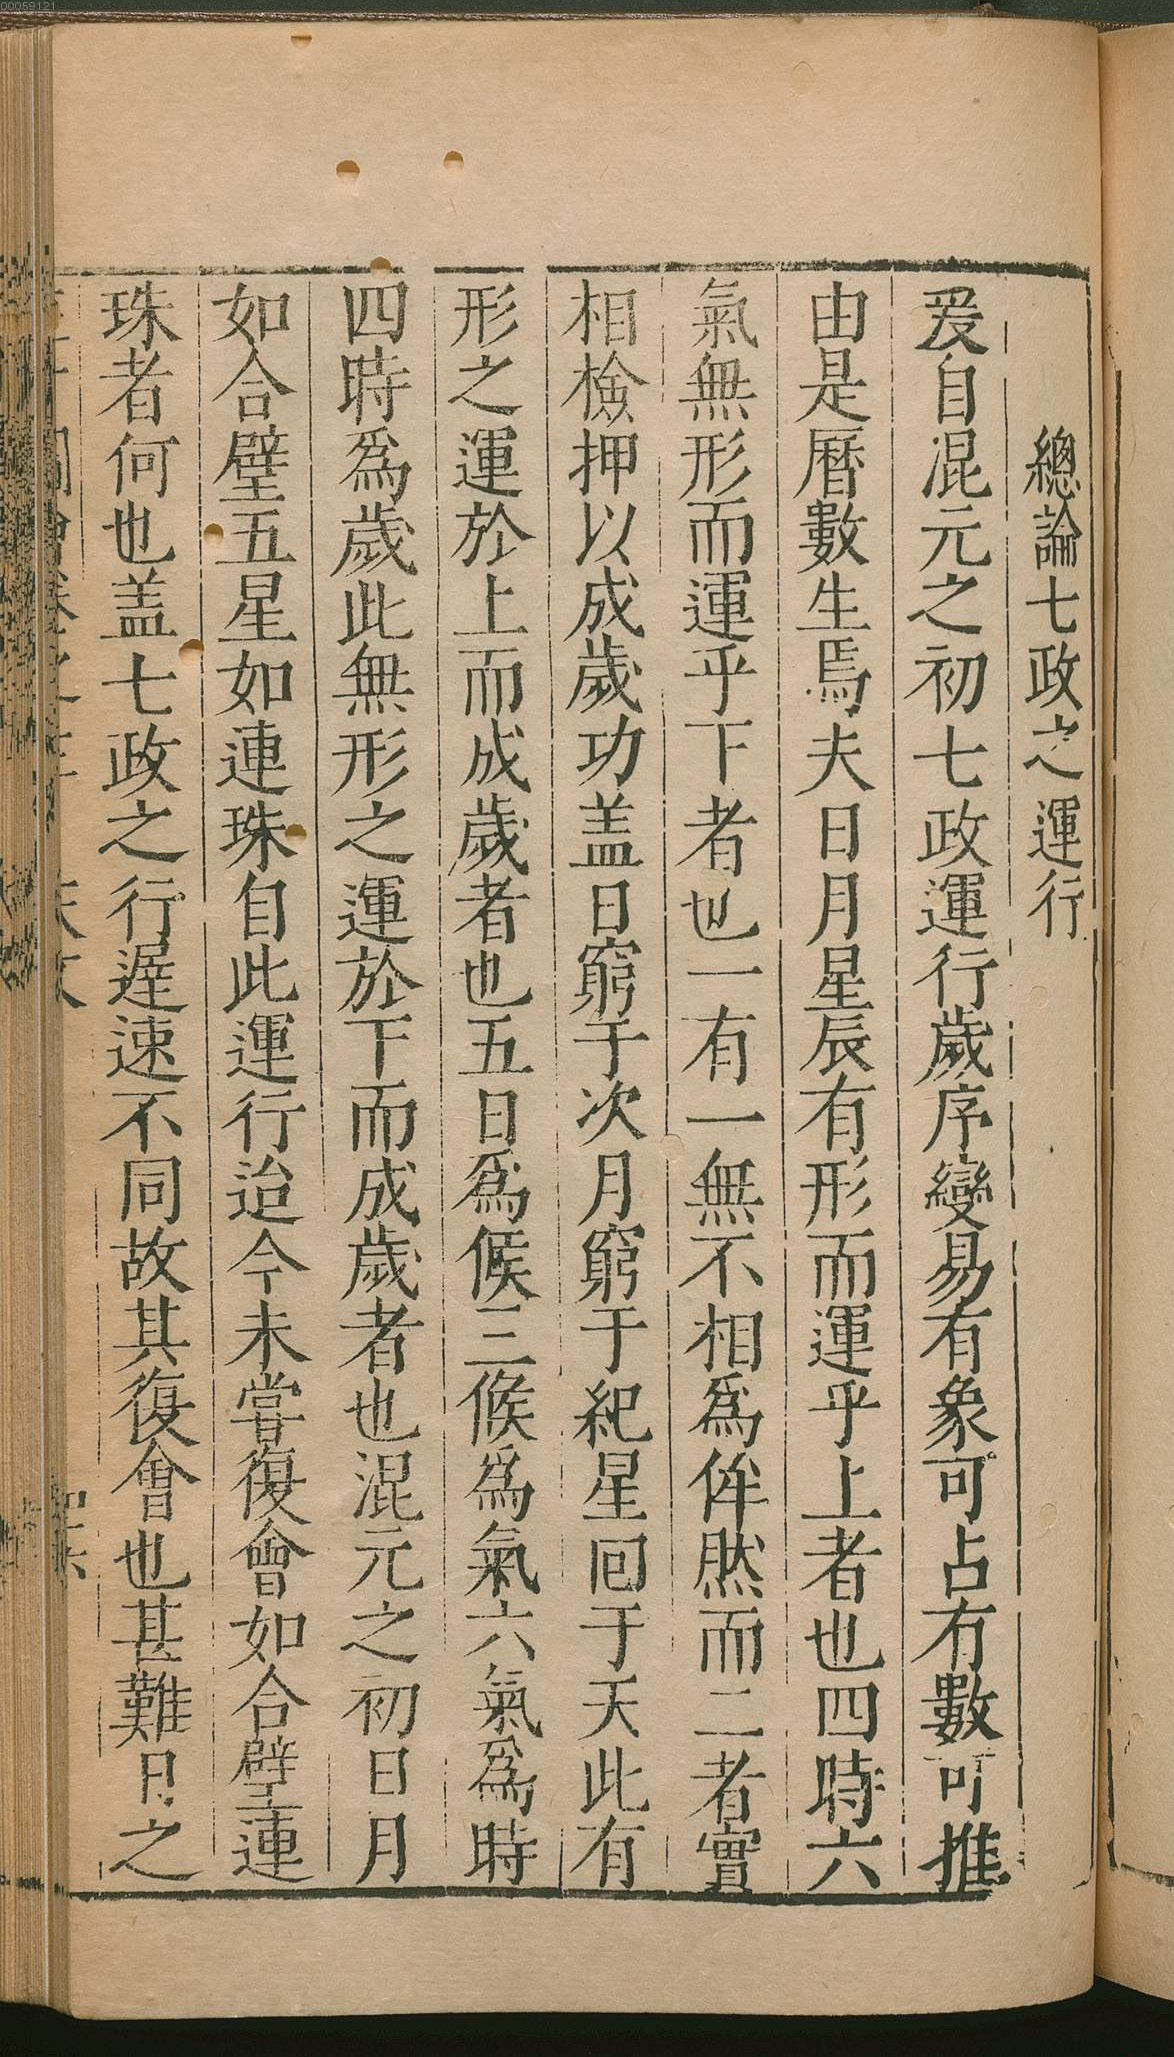 總論七政之運行
爰自混元之初七政運行歲序變易有象可占有數可推
由是曆數生焉夫日月星辰有形而運乎上者也四時六
氣無形而運乎下者也一有一無不相爲侔然而二者實
相檢押以成歲功盖日窮于次月窮于紀星囘于天此有
形之運於上而成歲者也五日爲候三候爲氣六氣爲時
四時爲歲此無形之運於下而成歲者也混元之初日月
如合璧五星如連珠自此運行迨今未嘗復會如合璧連
珠者何也盖七政之行遲速不同故其復會也甚難日之
00059121